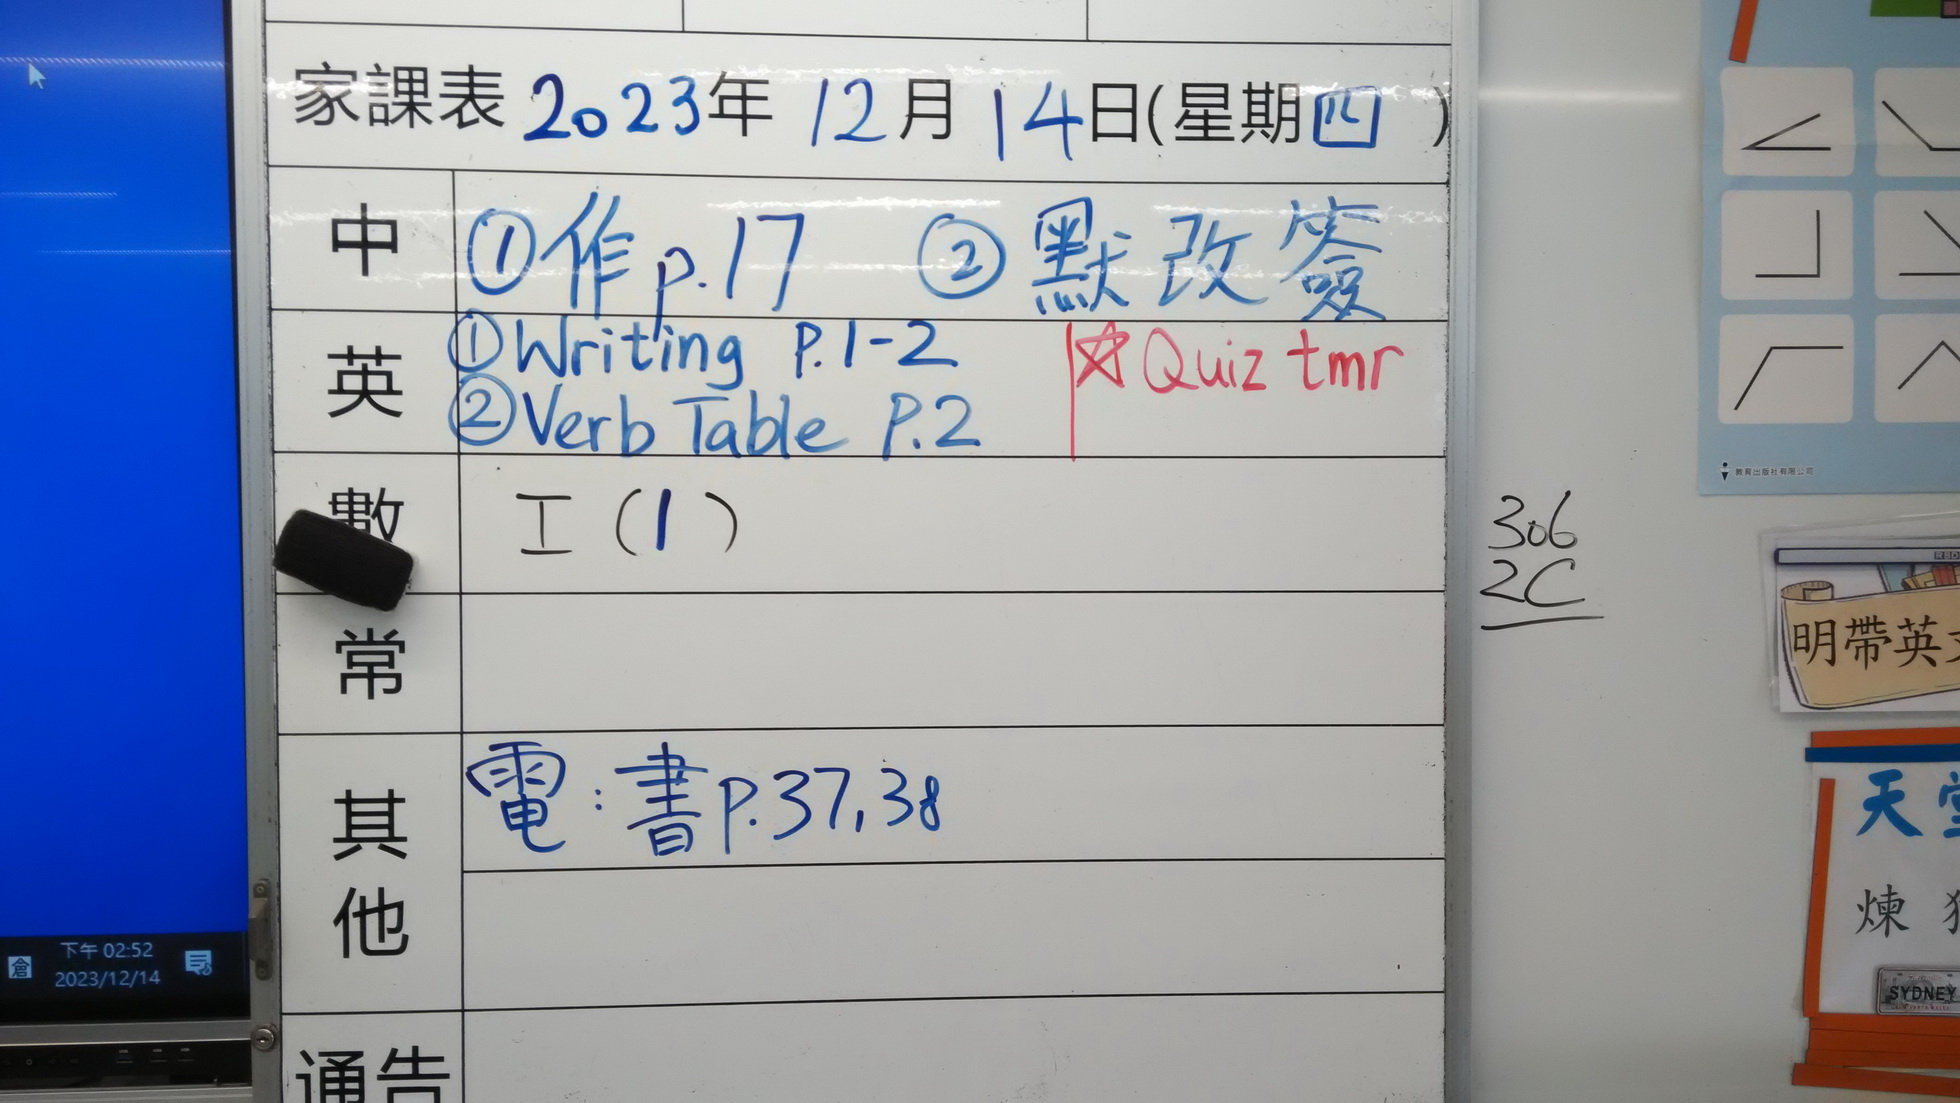 家課表 2023年 12月 14日(星期四 )
中
①作p.17 ②默改簽
英
①Writing P.1-2
②Verb Table P.2
☆Quiz tmr
數
工(1)
常
其他
電:書p.37,38
通告
306
2C
倉
下午 02:52
2023/12/14
教育出版社有限公司
明帶英
天
煉
SYDNEY